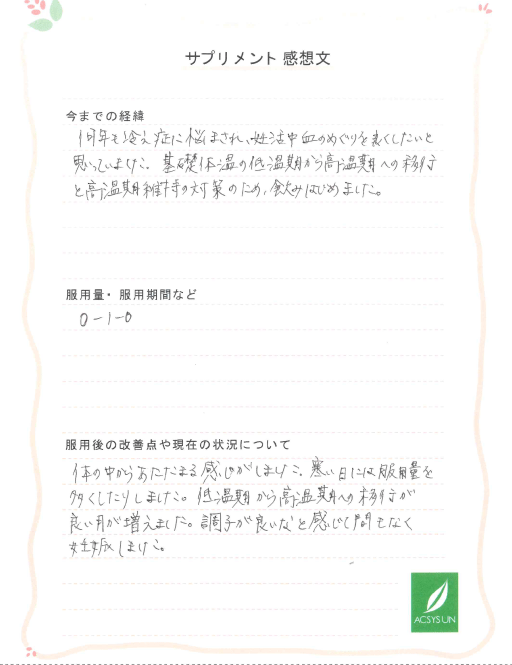 サプリメント 感想文
今までの経緯
何年も冷え症に悩まされ、妊活中血のめぐりを良くしたいと
思っていました。基礎体温の低温期から高温期への移行
と高温期維持の対策のため、飲みはじめました。
服用量・服用期間など
0-1-0
服用後の改善点や現在の状況について
体の中からあたたまる感じがしました。寒い日には服用量を
多くしたりしました。低温期から高温期への移行が
良い月が増えました。調子が良いなと感じて間もなく
妊娠しました。
ACSYSUN